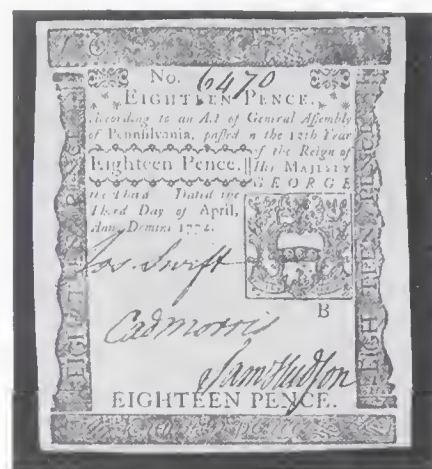 No. 6470
EIGHTEEN PENCE.
According to an Act of General Assembly
of Pennsilvania, passed in the 12th Year
of the Reign of
Eighteen Pence.
His MAJESTY
GEORGE
the Third. Dated the
Third Day of April,
Ann. Domini 1772.
Jos. Swift
B
Cad Morris
Saml Hudson
EIGHTEEN PENCE.
EIGHTEEN PENCE
EIGHTEEN PENCE